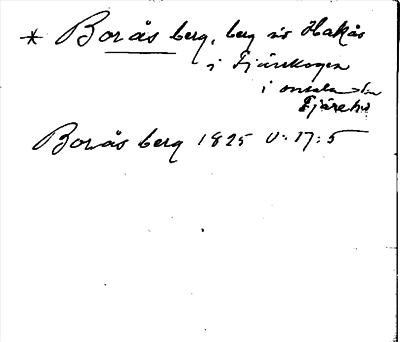 * Borås berg, berg s.s Hakås
i Fjärskogen
i onsala sn
Fjäre hd
Borås berg 1825 V: 17: 5